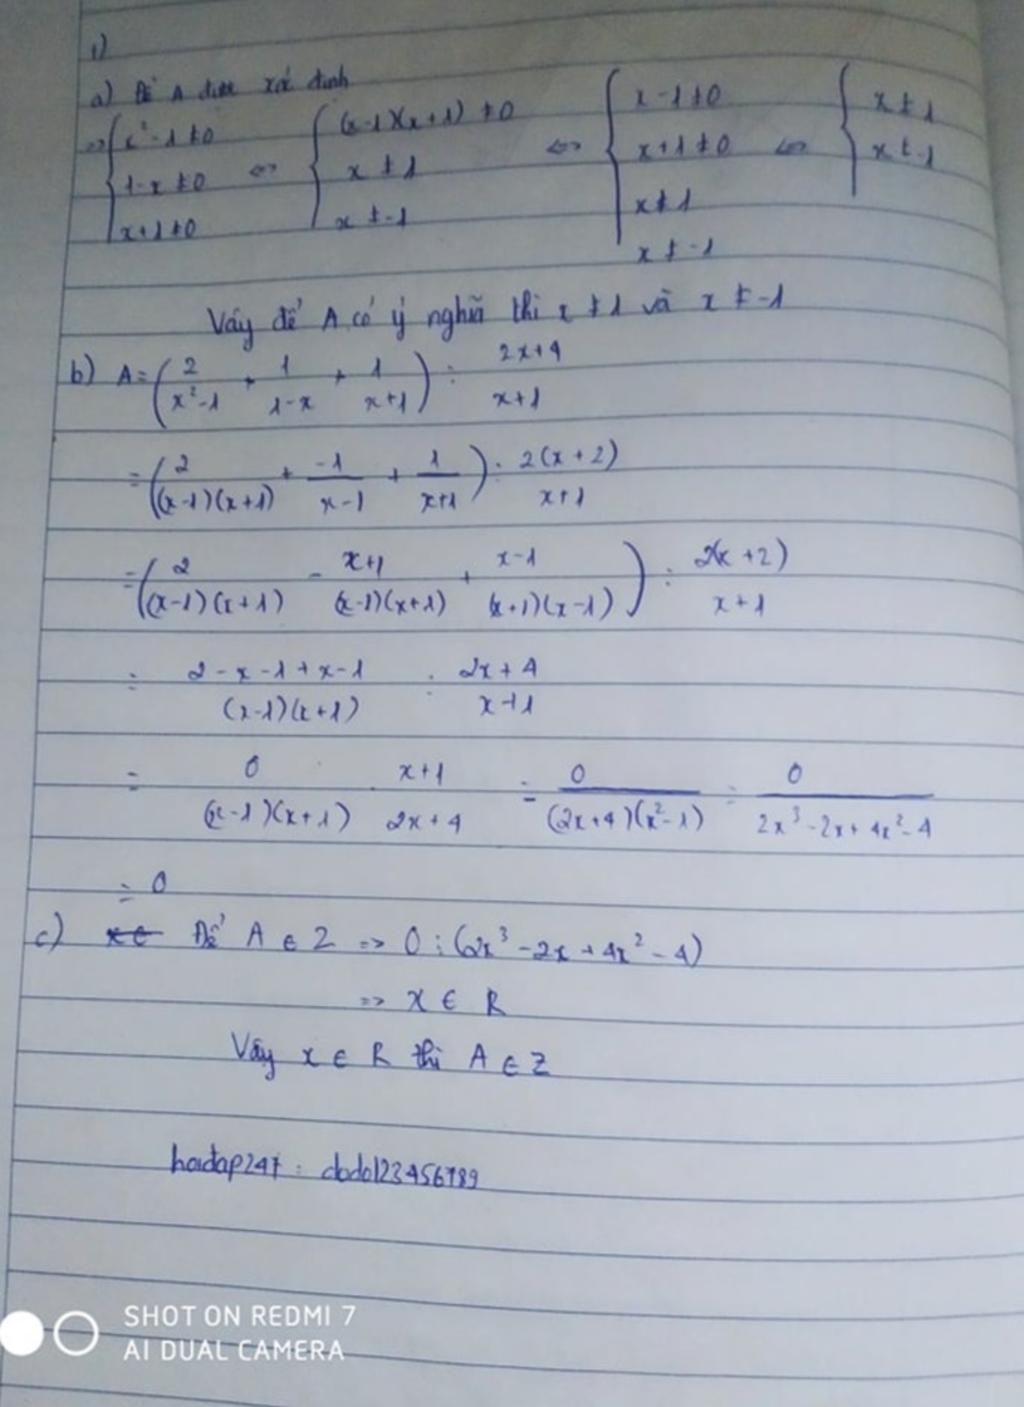 1)
a) Để A được xác định
=> { x² - 1 ≠ 0 <=> { (x-1)(x+1) ≠ 0 <=> { x - 1 ≠ 0 <=> { x ≠ 1
1 - x ≠ 0 x ≠ 1 x + 1 ≠ 0 x ≠ -1
x + 1 ≠ 0 x ≠ -1 x ≠ 1
x ≠ -1
Vậy để A có ý nghĩa thì x ≠ 1 và x ≠ -1
b) A = (2/(x²-1) + 1/(1-x) + 1/(x+1)) : (2x+4)/(x+1)
= (2/((x-1)(x+1)) + (-1)/(x-1) + 1/(x+1)) : 2(x+2)/(x+1)
= (2/((x-1)(x+1)) - (x+1)/((x-1)(x+1)) + (x-1)/((x+1)(x-1))) : 2(x+2)/(x+1)
= (2-x-1+x-1)/((x-1)(x+1)) : (2x+4)/(x+1)
= 0/((x-1)(x+1)) . (x+1)/(2x+4) = 0/((2x+4)(x²-1)) = 0/(2x³-2x+4x²-4)
= 0
c) Để A ∈ Z => 0 ⋮ (2x³-2x+4x²-4)
=> x ∈ R
Vậy x ∈ R thì A ∈ Z
hoidap247 : dodo123456789
SHOT ON REDMI 7
AI DUAL CAMERA